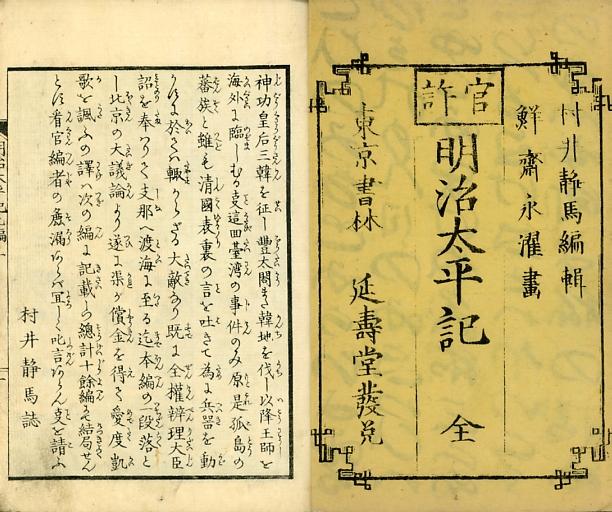 村井静馬編輯
鮮齋永濯畫
官許
明治太平記 全
東京書林 延壽堂發兌
神功皇后三韓を征し豐太閤また韓坤を伐し以降王師を
海外に臨しむる支這回臺湾の事件のみ原是孤島の
蕃族と雖も清國表裏の言を吐きて為に兵器を動
於ては輙からざる大敵あり既に全權辨理大臣
詔を奉じて支那へ渡海に至る迄本編の一段落と
し北京の大議論より遂に渠が償金を得て愛度凱
歌を諷ふの譯は次の編に記載し總計十餘編にて結局せん
とす看官編者の麁漏あらば冝しく叱言あらん支を請ふ
村井静馬誌